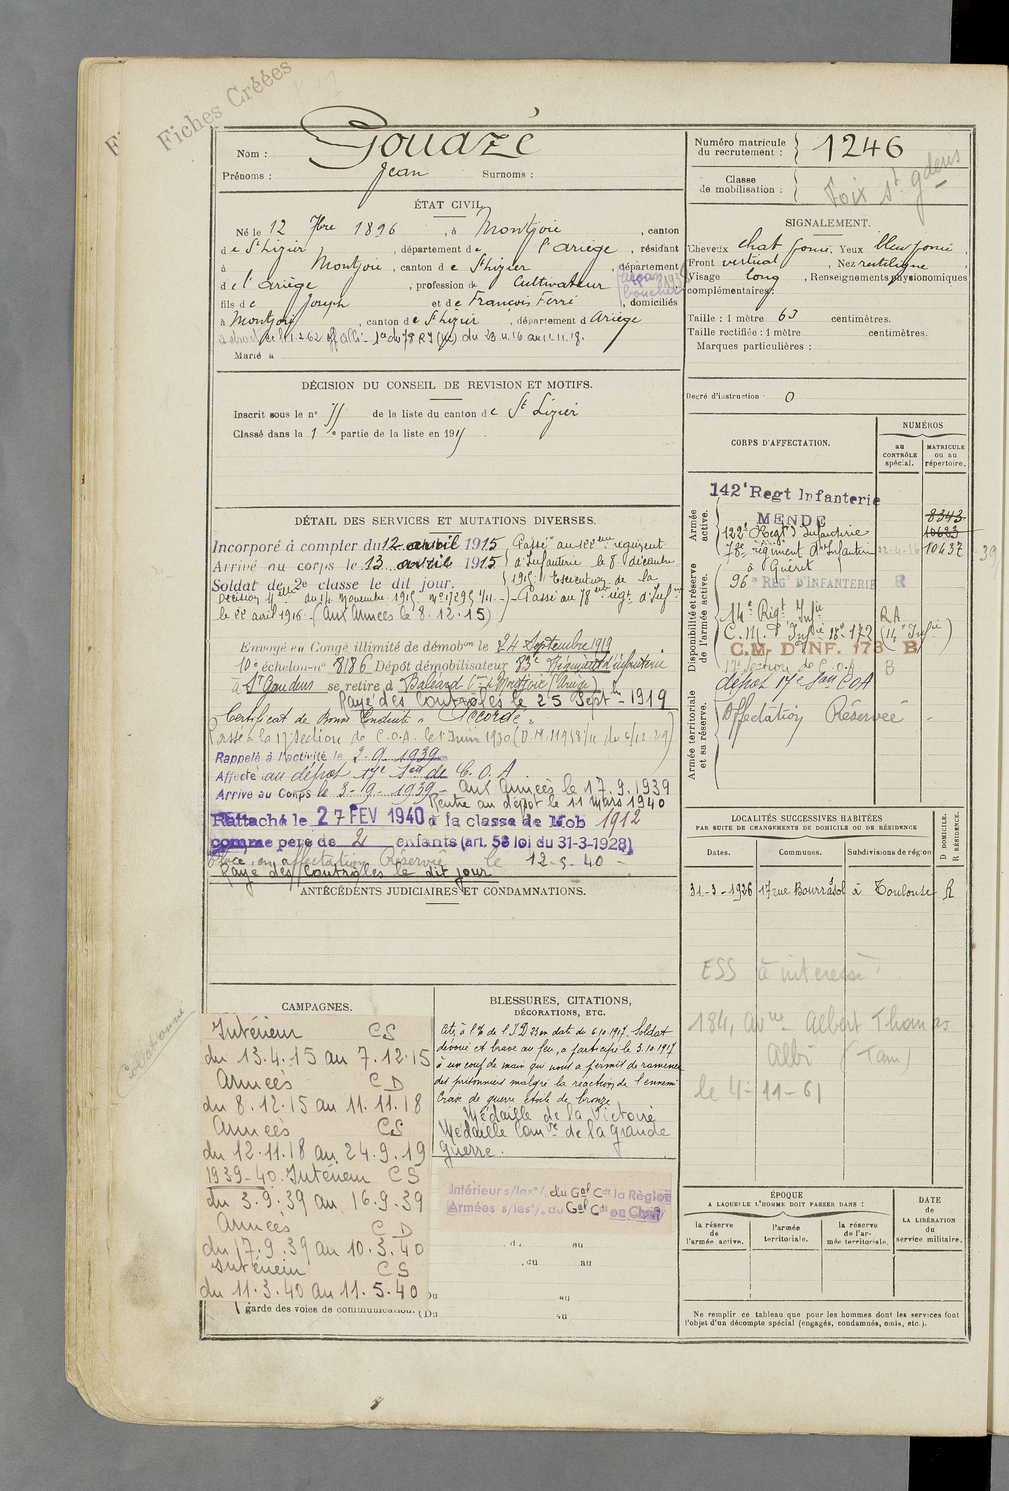 Fiches Créées
Nom : Gouazé
Prénoms : Jean Surnoms :
Numéro matricule du recrutement : 1246
Classe de mobilisation :
Foix St Gdens
ÉTAT CIVIL.
Né le 12 7bre 1896, à Montjoie, canton
de St Lizier, département de l'Ariège, résidant
à Montjoie, canton de St Lizier, département
de l'Ariège, profession de Cultivateur
fils de Joseph et de François Ferré, domiciliés
à Montjoie, canton de St Lizier, département d Ariège
Marié à
SIGNALEMENT.
Cheveux chat foncé, Yeux bleu foncé
Front vertical, Nez rectiligne
Visage long, Renseignements physionomiques
complémentaires :
Taille : 1 mètre 63 centimètres.
Taille rectifiée : 1 mètre centimètres.
Marques particulières :
Degré d'instruction : 0
DÉCISION DU CONSEIL DE REVISION ET MOTIFS.
Inscrit sous le n° de la liste du canton de St Lizier
Classé dans la 1e partie de la liste en 191
DÉTAIL DES SERVICES ET MUTATIONS DIVERSES.
Incorporé à compter du 12 avril 1915
Arrivé au corps le 13 avril 1915
Soldat de 2e classe le dit jour.
Passé au 122me régiment
d'Infanterie le 8 décembre
1915 Exécution de la
Décision du 14 Novembre 1915 Passé au 78me régt d'Infie
le 22 avril 1916 (Aux Armées le 8.12.15)
Envoyé en Congé illimité de démobon le 24 Septembre 1919
10e échelon n° 886 Dépôt démobilisateur 83e Régiment d'infanterie
à St Gaudens se retire à Baléard Cne de Montjoie (Ariège)
Rayé des Contrôles le 25 Sept 1919
Certificat de Bonne Conduite "Accordé"
Passé à la 17e section de C.O.A. le 1er Juin 1930
Rappelé à l'activité le 2-9-1939
Affecté au dépôt 17e Son de C.O.A.
Arrivé au Corps le 3-9-1939 - aux Armées le 17.9.1939
Rentre au dépôt le 11 Mars 1940
Rattaché le 27 FEV 1940 à la classe de Mob 1912
comme père de 2 enfants (art. 58 loi du 31-3-1928)
Placé en affectation Réservée le 12-5-40 -
Rayé des Contrôles le dit jour
ANTÉCÉDENTS JUDICIAIRES ET CONDAMNATIONS.
CORPS D'AFFECTATION.
NUMÉROS
au CONTRÔLE spécial.
MATRICULE ou au répertoire.
Armée active.
142e Regt Infanterie
MENDE
8343
122e Régt d'Infanterie 10683
78e régiment d'Infanterie 22-4-16 10637
à Guéret
Disponibilité et réserve de l'armée active.
96e REGt D'INFANTERIE R
14e Régt Infie R.A.
C.M. d'Infie 18e 173 (14e Infie)
C.M. D'INF. 173 B
17e Section de C.O.A. B
dépôt 17e Son COA
Armée territoriale et sa réserve.
Affectation Réservée -
LOCALITÉS SUCCESSIVES HABITÉES
PAR SUITE DE CHANGEMENTS DE DOMICILE OU DE RÉSIDENCE.
Dates. Communes. Subdivisions de région
D DOMICILE. R RÉSIDENCE.
31-3-1926 17 rue Bourrassol à Toulouse R
ESS à intéressé
184, avue Albert Thomas
Albi (Tarn)
le 4-11-61
Collationné
CAMPAGNES.
Intérieur CS
du 13.4.15 au 7.12.15
Armées CD
du 8.12.15 au 11.11.18
Armées CS
du 12.11.18 au 24.9.19
1939-40. Intérieur CS
du 3.9.39 au 16.9.39
Armées CD
du 17.9.39 au 10.3.40
Intérieur CS
du 11.3.40 au 11.5.40
garde des voies de communication. (Du au
BLESSURES, CITATIONS, DÉCORATIONS, ETC.
Cité à l'O de l'I D 33 en date du 6.10.1917. Soldat
dévoué et brave au feu, a participé le 3.10.1917
à un coup de main qui nous a permis de ramener
des prisonniers malgré la réaction de l'ennemi
Croix de guerre étoile de bronze
Médaille de la Victoire
Médaille Comve de la grande
guerre.
Intérieur s/les o/. du Gal Cdt la Région
Armées s/les o/. du Gal Cdt en Chef
ÉPOQUE
A LAQUELLE L'HOMME DOIT PASSER DANS :
la réserve de l'armée active.
l'armée territoriale.
la réserve de l'armée territoriale.
DATE de LA LIBÉRATION du service militaire.
Ne remplir ce tableau que pour les hommes dont les services font
l'objet d'un décompte spécial (engagés, condamnés, omis, etc.).